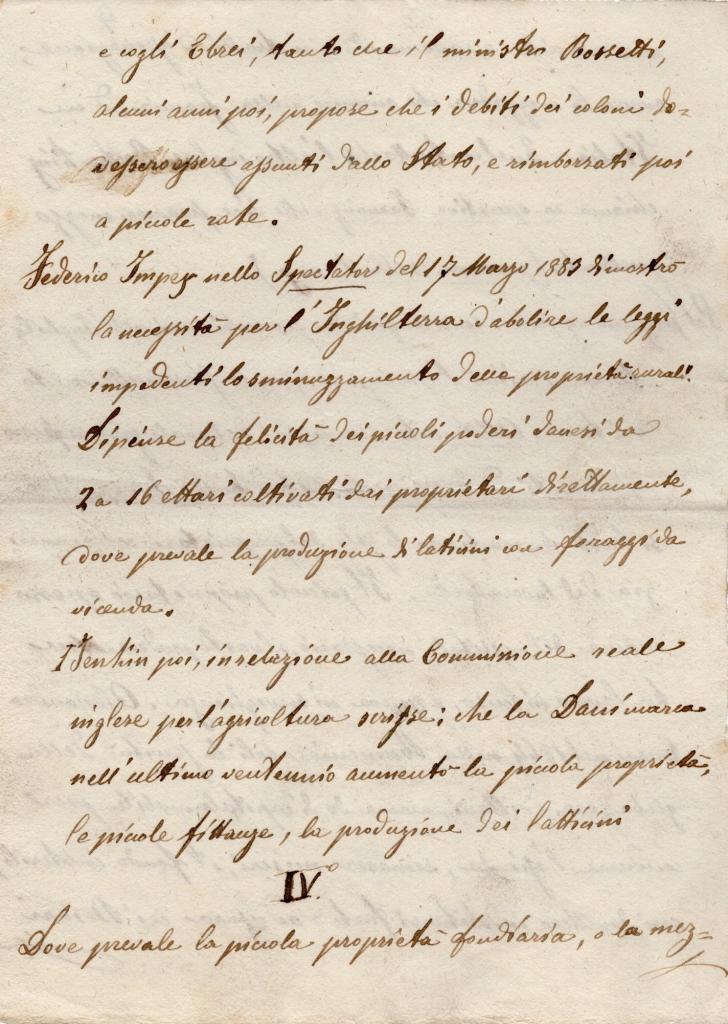 e cogli Ebrei, tanto che il ministro Bossetti,
alcuni anni poi, propose che i debiti dei coloni do=
vessero essere assunti dallo Stato, e rimborsati poi
a piccole rate.
Federico Impey nello Spectator del 17 Marzo 1883 dimostrò
la necessità per l'Inghilterra d'abolire le leggi
impedenti lo sminuzzamento delle proprietà rurali.
Dipinse la felicità dei piccoli poderi danesi da
2 a 16 ettari coltivati dai proprietari direttamente,
dove prevale la produzione di laticini con foraggi da
vicenda.
Jenkin poi, in relazione alla Commissione reale
inglese per l'agricoltura scrisse; che la Danimarca
nell'ultimo ventennio aumentò la piccola proprietà,
le piccole fittanze, la produzione dei latticini
IV.°
Dove prevale la piccola proprietà fondiaria, o la mez=